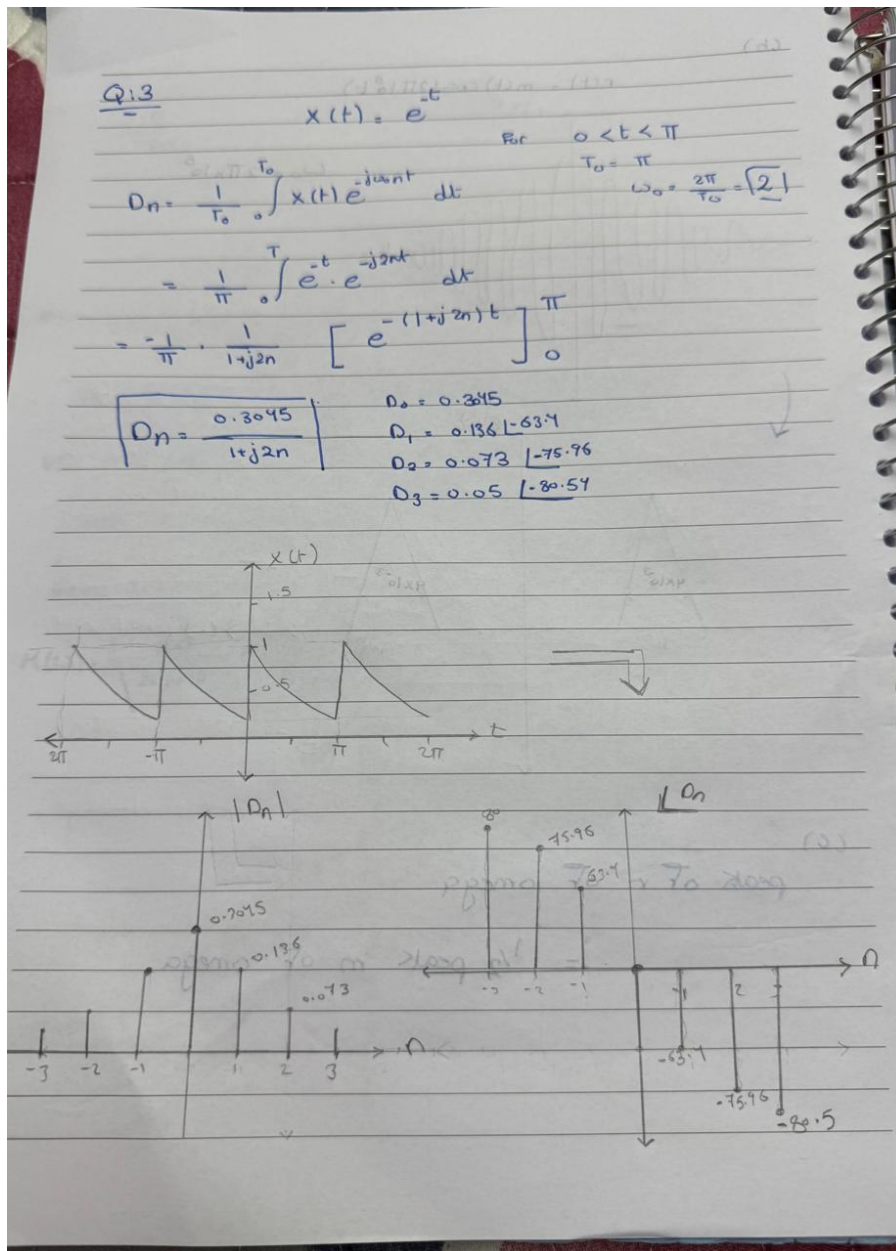 Q:3
x(t) = e^-t
For 0 < t < π
T₀ = π
Dn = 1/T₀ ₀∫^T₀ x(t) e^-jω₀nt dt
ω₀ = 2π/T₀ = 2
= 1/π ₀∫^T e^-t . e^-j2nt dt
= -1/π . 1/1+j2n [ e^-(1+j2n)t ]₀^π
Dn = 0.3045/1+j2n
D₀ = 0.3045
D₁ = 0.136 ∠-63.4
D₂ = 0.073 ∠-75.96
D₃ = 0.05 ∠-80.54
x(t)
1.5
1
0.5
2π -π π 2π t
|Dn|
0.3045
0.136
0.073
-3 -2 -1 1 2 3 n
∠Dn
80
75.96
63.4
-3 -2 -1 1 2 3 n
-63.4
-75.96
-80.5